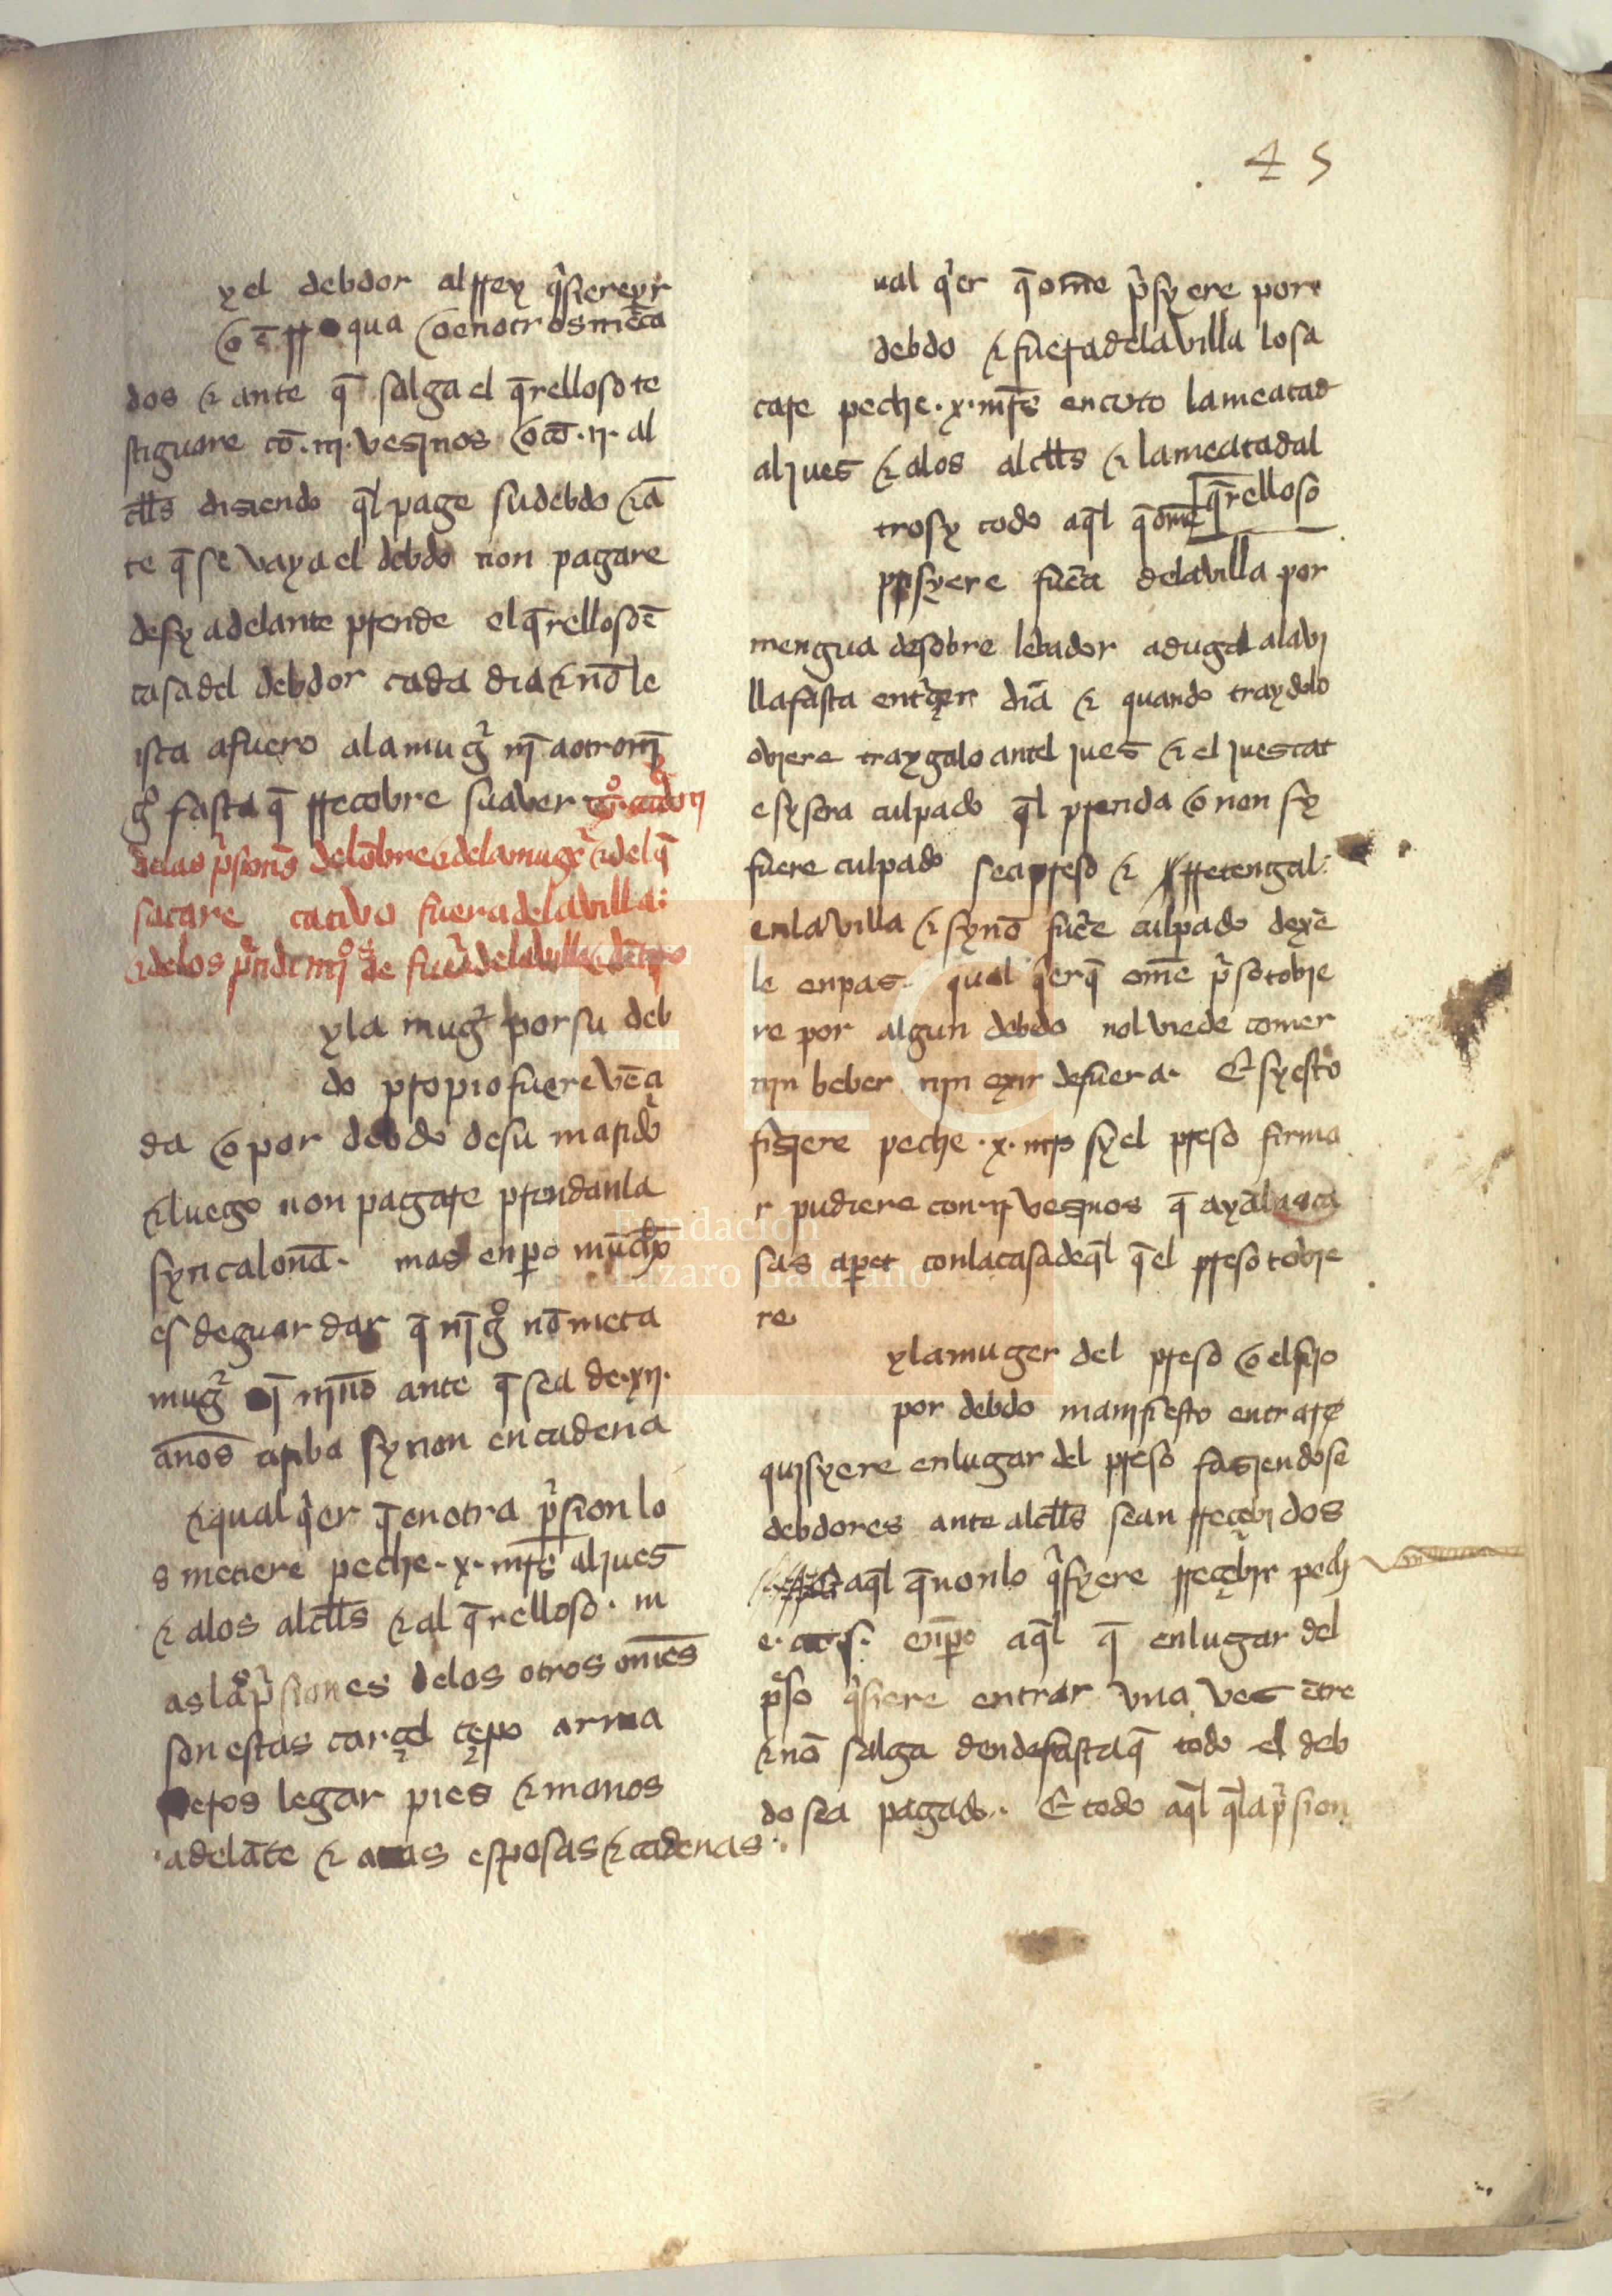 45
y el debdor al rrey q̇siere yr
o ē rr qua o en otros mēca
dos ⁊ ante q̄ salga el q̄relloso te
stiguare cō .iij. vesinos o cō .ij. al
clls disiendo q̄l page su debdo ⁊ ā
te q̄ se vaya el debdo non pagare
desy adelante prende el q̄relloso ē
casa del debdor cada dia ⁊ nō le
ista a fuero a la mug̃ nj̄ a otro nj̄
gº fasta q̄ rrecobre su aver
de las p̃siones del ōbre ⁊ de la mug̃ ⁊ del q̄
sacare cativo fuera de la villa:
⁊ de los
y la mug̃ por su deb
do propio fuere vēçi
da o por debdo de su marido
⁊ luego non pagare prendan la
syn calonā. mas enpo
es de guardar q̄ nj̄gº nō meta
mug̃ nj̄ njño ante q̄ sea de .xij.
años ariba sy non en cadena
⁊ qual q̇er q̄ en otra p̃sion lo
s metiere peche .x. mr̄s al jues
⁊ a los alclls ⁊ al q̄relloso. m
as las p̃siones de los otros om̄es
son estas carçel çepo arma
 legar pies ⁊ manos
adelāte ⁊ atras esposas ⁊ cadenas.
ual q̇er q̄ om̄e p̃syere por
debdo ⁊ fuera de la villa lo sa
care peche .x. mr̄s en coto la meatad
al jues ⁊ a los alclls ⁊ la meatad al
q̄relloso
trosy todo aq̄l q̄ om̄e
prisyere fuēa de la villa por
mengua de sobre levador adugal a la vi
lla fasta en terçer dia ⁊ quando traydolo
oviere traygalo ant el jues ⁊ el jues cat
e sy sera culpado q̄l prenda o non sy
fuere culpado sea preso ⁊ rretengal
en la villa ⁊ sy nō fuēe culpado dexē
le en pas. qual q̇er q̄ om̄e p̃so tovie
re por algun debdo nol viede comer
nin beber nin exir de fuera. E sy esto
fisiere peche .x. mrs sy el preso firma
r pudiere con .ij. vesinos q̄ ayā las ca
sas a par con la casa de q̄l q̄ el preso tovie
re
y la muger del preso o el fijo
por debdo manifiesto entrar
quisyere en lugar del preso fasiendose
debdores ante alclls sean rreçebidos
aq̄l q̄ non lo q̇syere rreçebir pech
e. enpo aq̄l q̄ en lugar del
p̃so q̇siere entrar vna ves ētre
⁊ nō salga dende fasta q̄ todo el deb
do sea pagado. E todo aq̄l q̄ la p̃sion
Fundación
Lázaro Galdiano